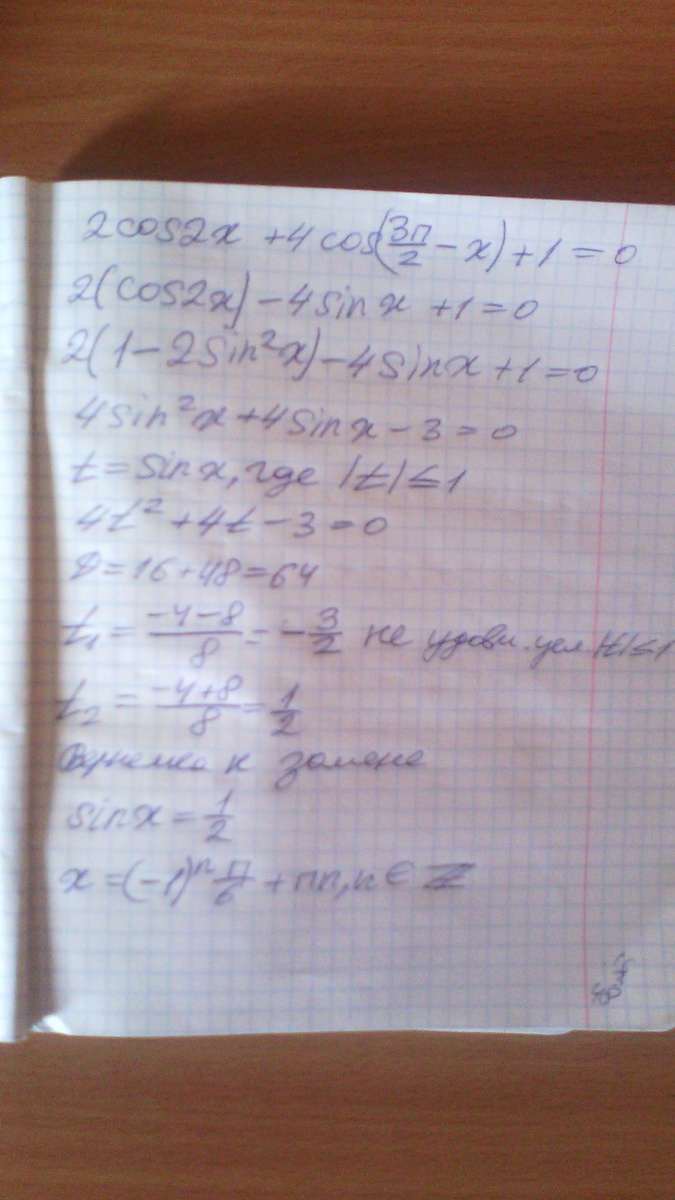 2cos2x + 4cos(3π/2 - x) + 1 = 0
2(cos2x) - 4sinx + 1 = 0
2(1 - 2sin²x) - 4sinx + 1 = 0
4sin²x + 4sinx - 3 = 0
t = sinx, где |t| ≤ 1
4t² + 4t - 3 = 0
D = 16 + 48 = 64
t₁ = (-4-8)/8 = -3/2 не удовл. усл. |t| ≤ 1
t₂ = (-4+8)/8 = 1/2
к замене
sinx = 1/2
x = (-1)ⁿ π/6 + πn, n ∈ Z